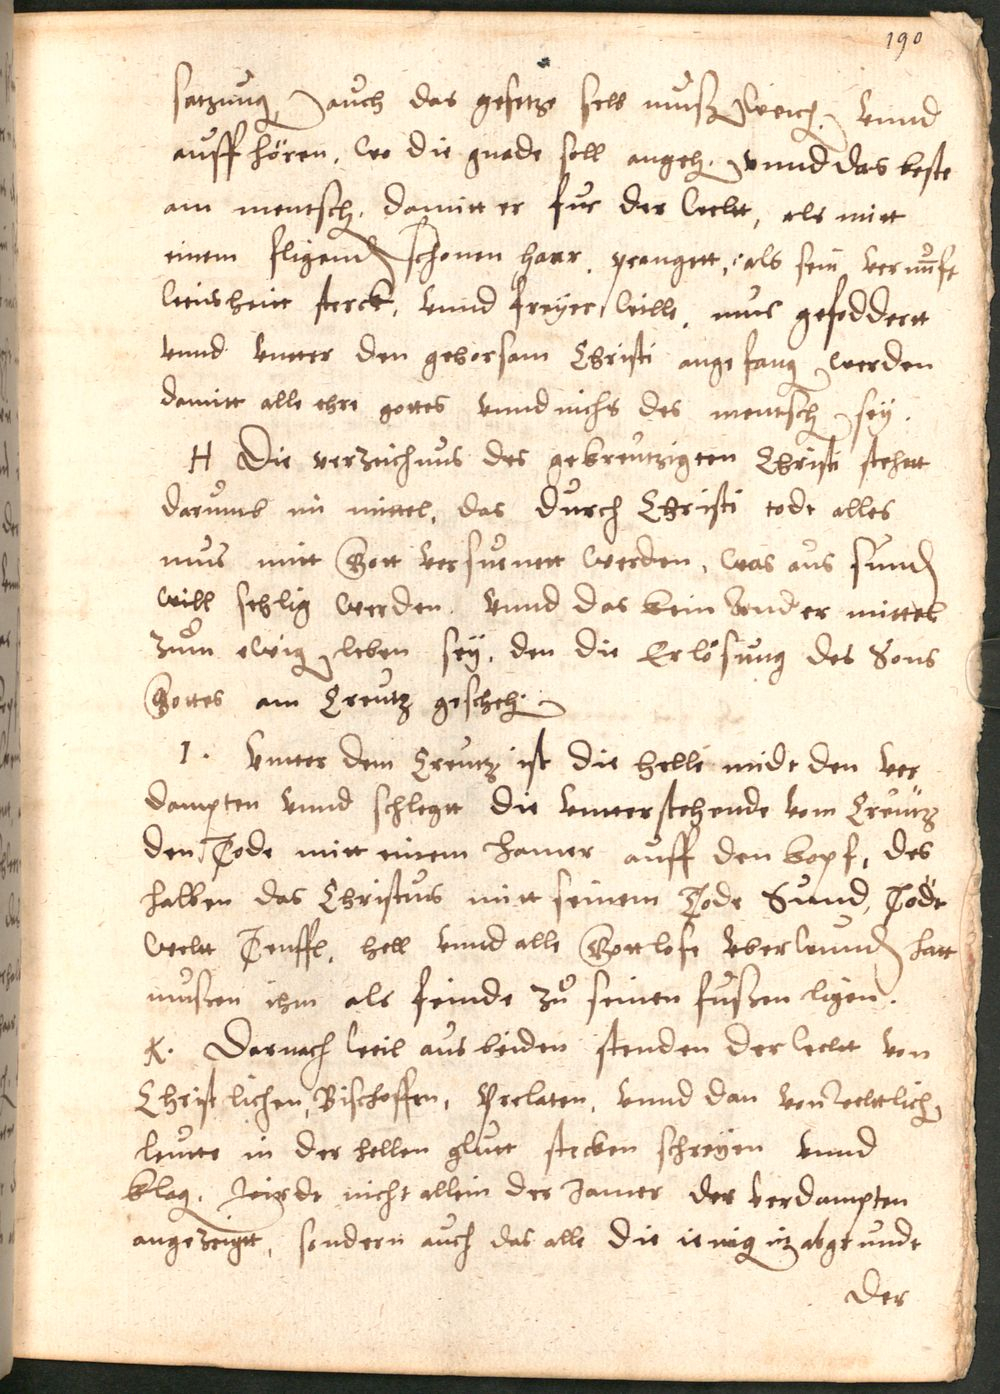 190
satzung auch das gesetze selb muß weich vnnd
auffhören, wo die gnade soll angeh. vnnd das beste
am mentsch. damitt er fur der weltt, als mitt
einem fligend schonen harr, prangett, als sein vernunft
weisheitt sterck, vnnd freyer wille, mus gefoddertt
vnnd vntter den gehorsam Christi angefang werden
damitt alle ehre gottes vnnd nichts des mentsch sey.
H Die verzeichnus des gekreutzigten Christi stehett
darumb im mittel, das durch Christi tode alles
mus mitt Gott versuenett werden, was aus sund
will sehlig werden. vnnd das kein ander mittel
zum ewig leben sey, den die Erlösung des Sons
Gottes am Creutz gescheh.
I. Vntter dem Creutz ist die helle midt den ver
dampten vnnd schlegtt die vntterstehende vom Creutz
den Tode mitt einem hamer auff den kopf, des
halben das Christus mitt seinem Tode Sund, Tödt
weltt Teuffl, hell vnnd alle Gottlose vberwund hatt
mußen ihm als feinde zu seinen fußen ligen.
K. Darnach weil aus beiden stenden der weltt von
Christlichen, Bischoffen, Prelaten, vnnd dan von weltlich
leutte in der hellen glutt stecken schreyen vnnd
klag. wirde nicht allein der Jamer der verdampten
angezeigtt, sondern auch das alle die ienig itz abgrunde
der